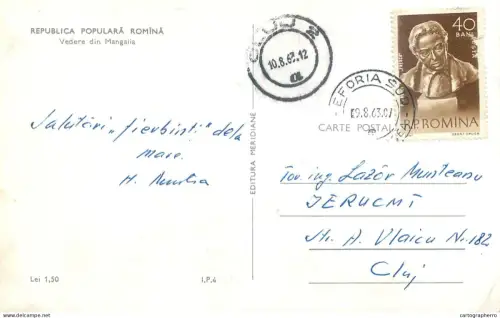 REPUBLICA POPULARĂ ROMÎNĂ
Vedere din Mangalia
CLUJ 2
10.8.63.12
40
BANI
EFORIA SUD
09.8.63.07
R.P.ROMINA
CARTE POSTALĂ
Salutări „fierbinți” dela
mare.
EDITURA MERIDIANE
Tov. ing. Lazăr Munteanu
IERUCMT
Str. A. Vlaicu Nr. 182
Cluj
Lei 1,50
I.P.4
cartographerro